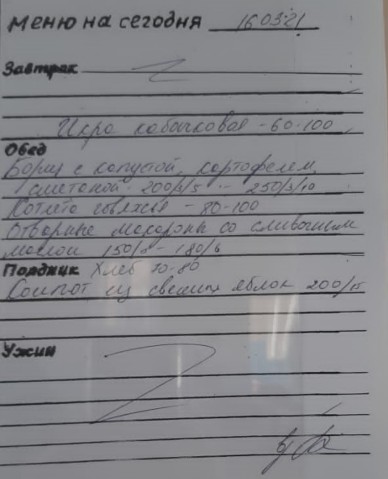 Меню на сегодня 16.03.21
Завтрак
Икра кабачковая - 60-100
Обед
Борщ с капустой, картофелем,
сметаной 200/5 - 250/5/10
Котлета - 80-100
Отварные макароны со сливочным
маслом 150/ - 180/6
Полдник Хлеб 70-80
Компот из свежих яблок 200/15
Ужин